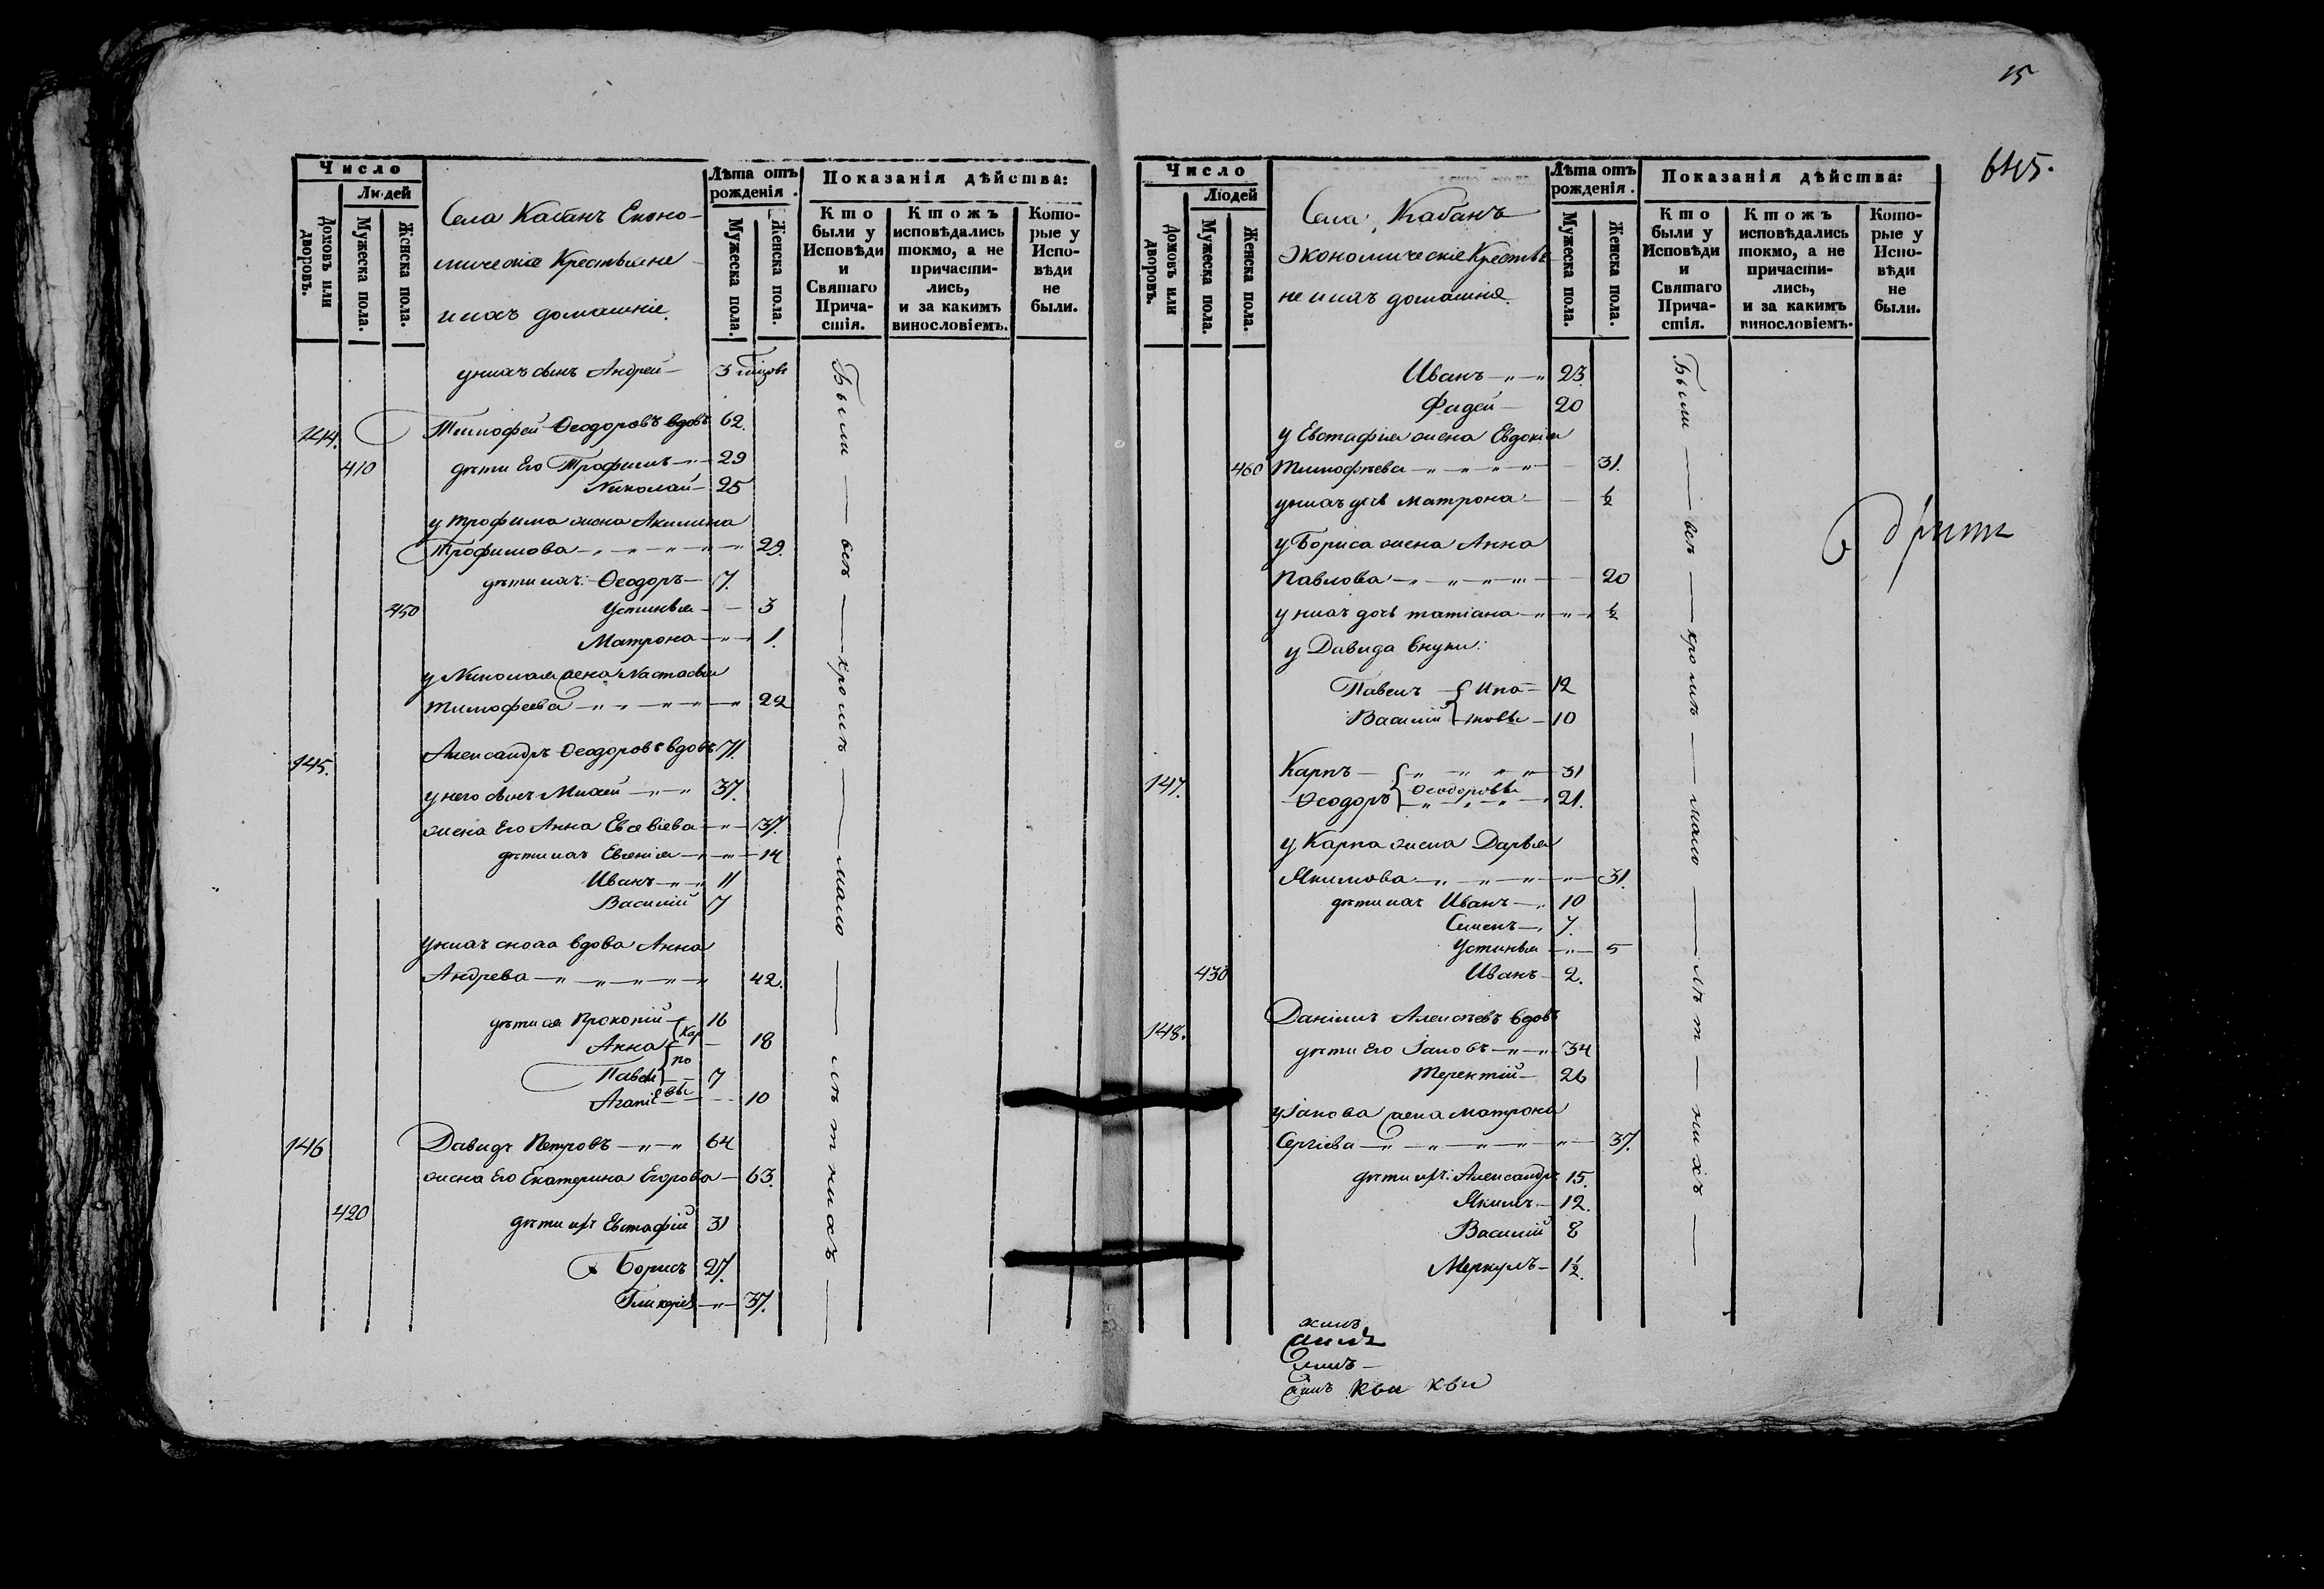 Число
Людей
Домовъ или дворовъ.
Мужеска пола.
Женска пола.
Села Кабанъ Еконо-
мическіе Крестьяне
и ихъ домашніе.
Лѣта отъ рожденія.
Мужеска пола.
Женска пола.
Показанія дѣйства:
Кто были у Исповѣди и Святаго Прича-стія.
Ктожъ исповѣдались токмо, а не причасти-лись, и за какимъ винословіемъ.
Кото-рые у Испо-вѣди не были.
у нихъ сынъ Андрей 3
144. Тимофей Ѳеодоровъ вдовъ 62.
410 дѣти Его Трофимъ 29
Николай 25
у Трофима жена Акилина
Трофимова 29.
дѣти ихъ: Ѳеодоръ 7.
450 Устинья 3
Матрона 1.
у Николая жена Настасья
Тимофеева 22
145. Александръ Ѳеодоровъ вдовъ 71.
у него сынъ Михей 37.
жена Его Анна Евсевіева 37.
дѣти ихъ Евгенія 14
Иванъ 11
Василій 7
у нихъ сноха вдова Анна
Андрева 42.
дѣти ея Прокопій 16
Анна 18
Карповы
Павелъ 7
Агапіе 10
146 Давидъ Петровъ 64
жена Его Екатерина Егорова 63.
420 дѣти ихъ Евстафій 31
Борисъ 27.
Гликерія 37.
Были — всѣ — кромѣ — мало — лѣтнихъ —
15
645.
Число
Людей
Домовъ или дворовъ.
Мужеска пола.
Женска пола.
Села Кабанъ
Экономическіе Крестья
не и ихъ домашніе
Лѣта отъ рожденія.
Мужеска пола.
Женска пола.
Показанія дѣйства:
Кто были у Исповѣди и Святаго Прича-стія.
Ктожъ исповѣдались токмо, а не причасти-лись, и за какимъ винословіемъ.
Кото-рые у Испо-вѣди не были.
Иванъ 23.
Фадей 20
у Евстафія жена Евдокія
460 Тимофѣева 31.
у нихъ дочь Матрона ½
у Бориса жена Анна
Павлова 20
у нихъ дочь Татіана ½
у Давида внуки:
Павелъ 12
Василій 10
147. Карпъ 31
Ѳеодоровы
Ѳеодоръ 21.
у Карпа жена Дарья
Якимова 31.
дѣти ихъ Иванъ 10
Семенъ 7.
Устинья 5
430 Иванъ 2.
148. Даніилъ Алексѣевъ вдовъ
дѣти Его Іаковъ 34
Терентій 26
у Іакова жена Матрона
Сергіева 37.
дѣти ихъ: Александръ 15.
Якимъ 12.
Василій 8
Меркулъ 1½.
Были — всѣ — кромѣ — мало — лѣт — нихъ —